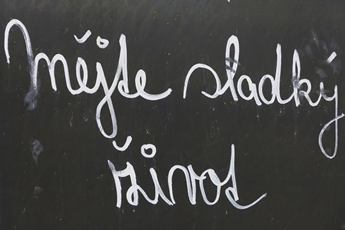 mějte sladký
život